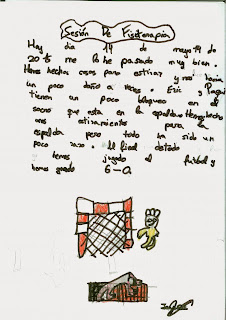 Sesión De Fisioterapia
Hoy día 14 de mayo de
2015 me lo he pasado muy bien.
Hemos hecho cosas para estirar y nos hacía
un poco daño a veces. Eric y Paqui
tienen un poco bloqueo en el
sacro que esta en la espalda. Hemos hecho
unos estiramientos para la
espalda pero todo ha sido un
poco raro. Al final
y hemos jugado al futbol y
hemos ganado 6-0